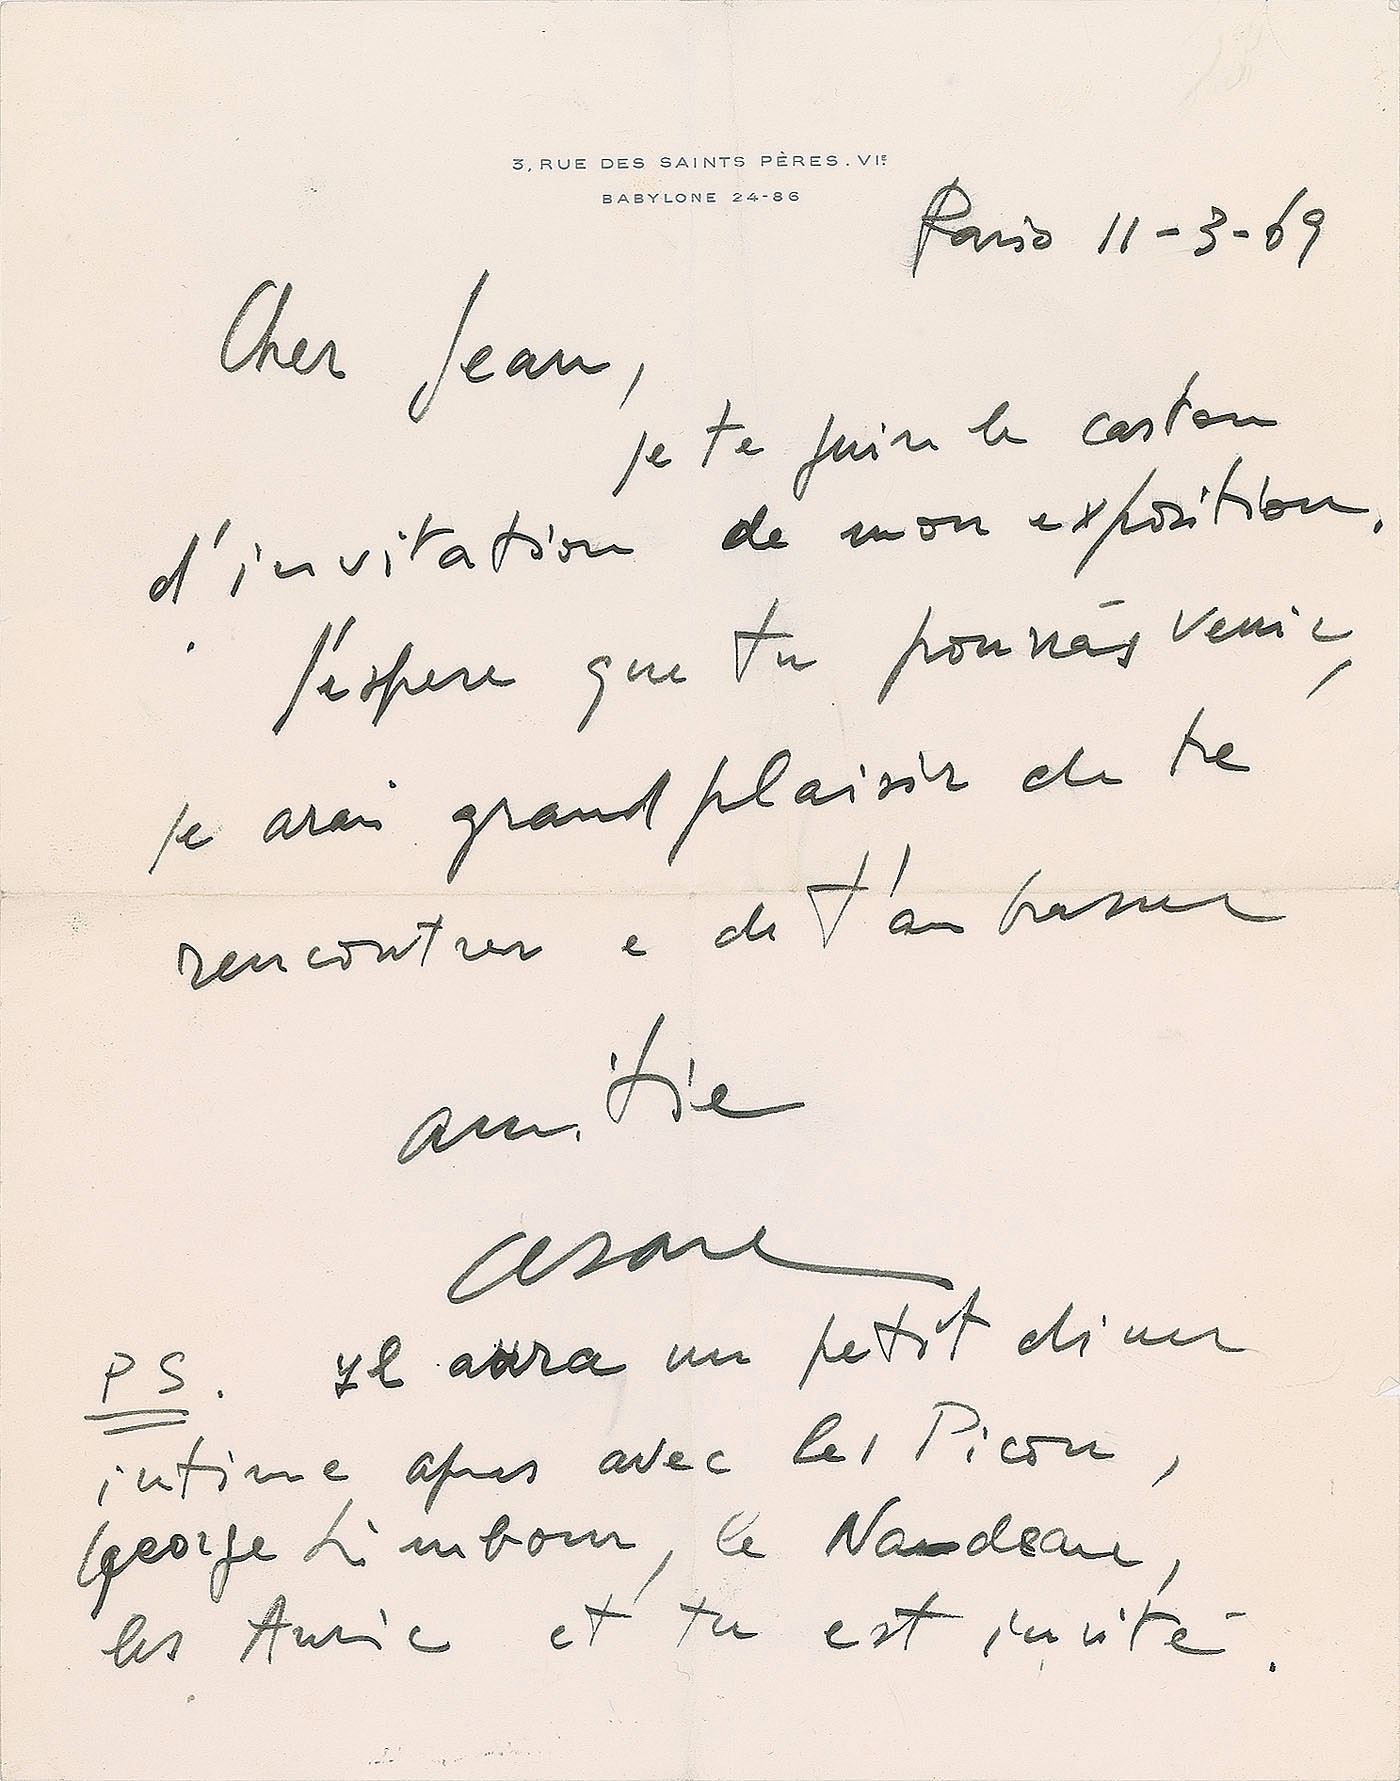 3, RUE DES SAINTS PÈRES. VIE
BABYLONE 24-86
Paris 11-3-69
Cher Jean,
je te juin le carton
d'invitation de mon exposition.
J'éspere que tu pourrás venir,
je arai grand plaisir de te
rencontrer e de t'ambrasser
amitie
Cesare
PS. Yl aura un petit diner
intime apres avec les Picon,
George Limbour, le Nadeau,
les Auric et tu est invité.